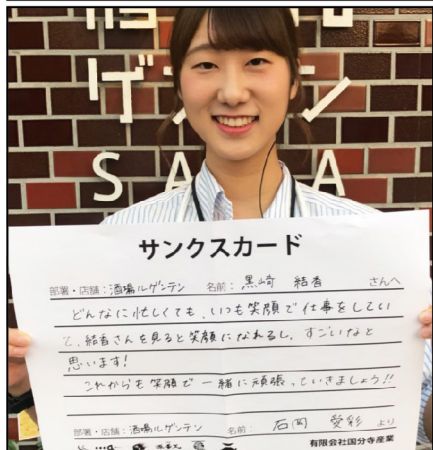 ゲンテン
SA A
サンクスカード
部署・店舗:酒場ルゲンテン 名前:黒崎 結香 さんへ
どんなに忙しくても、いつも笑顔で仕事をしてい
て、結香さんを見ると笑顔になれるし、すごいなと
思います!
これからも笑顔で一緒に頑張っていきましょう!!
部署・店舗:酒場ルゲンテン 名前: 石岡 愛彩 より
有限会社国分寺産業